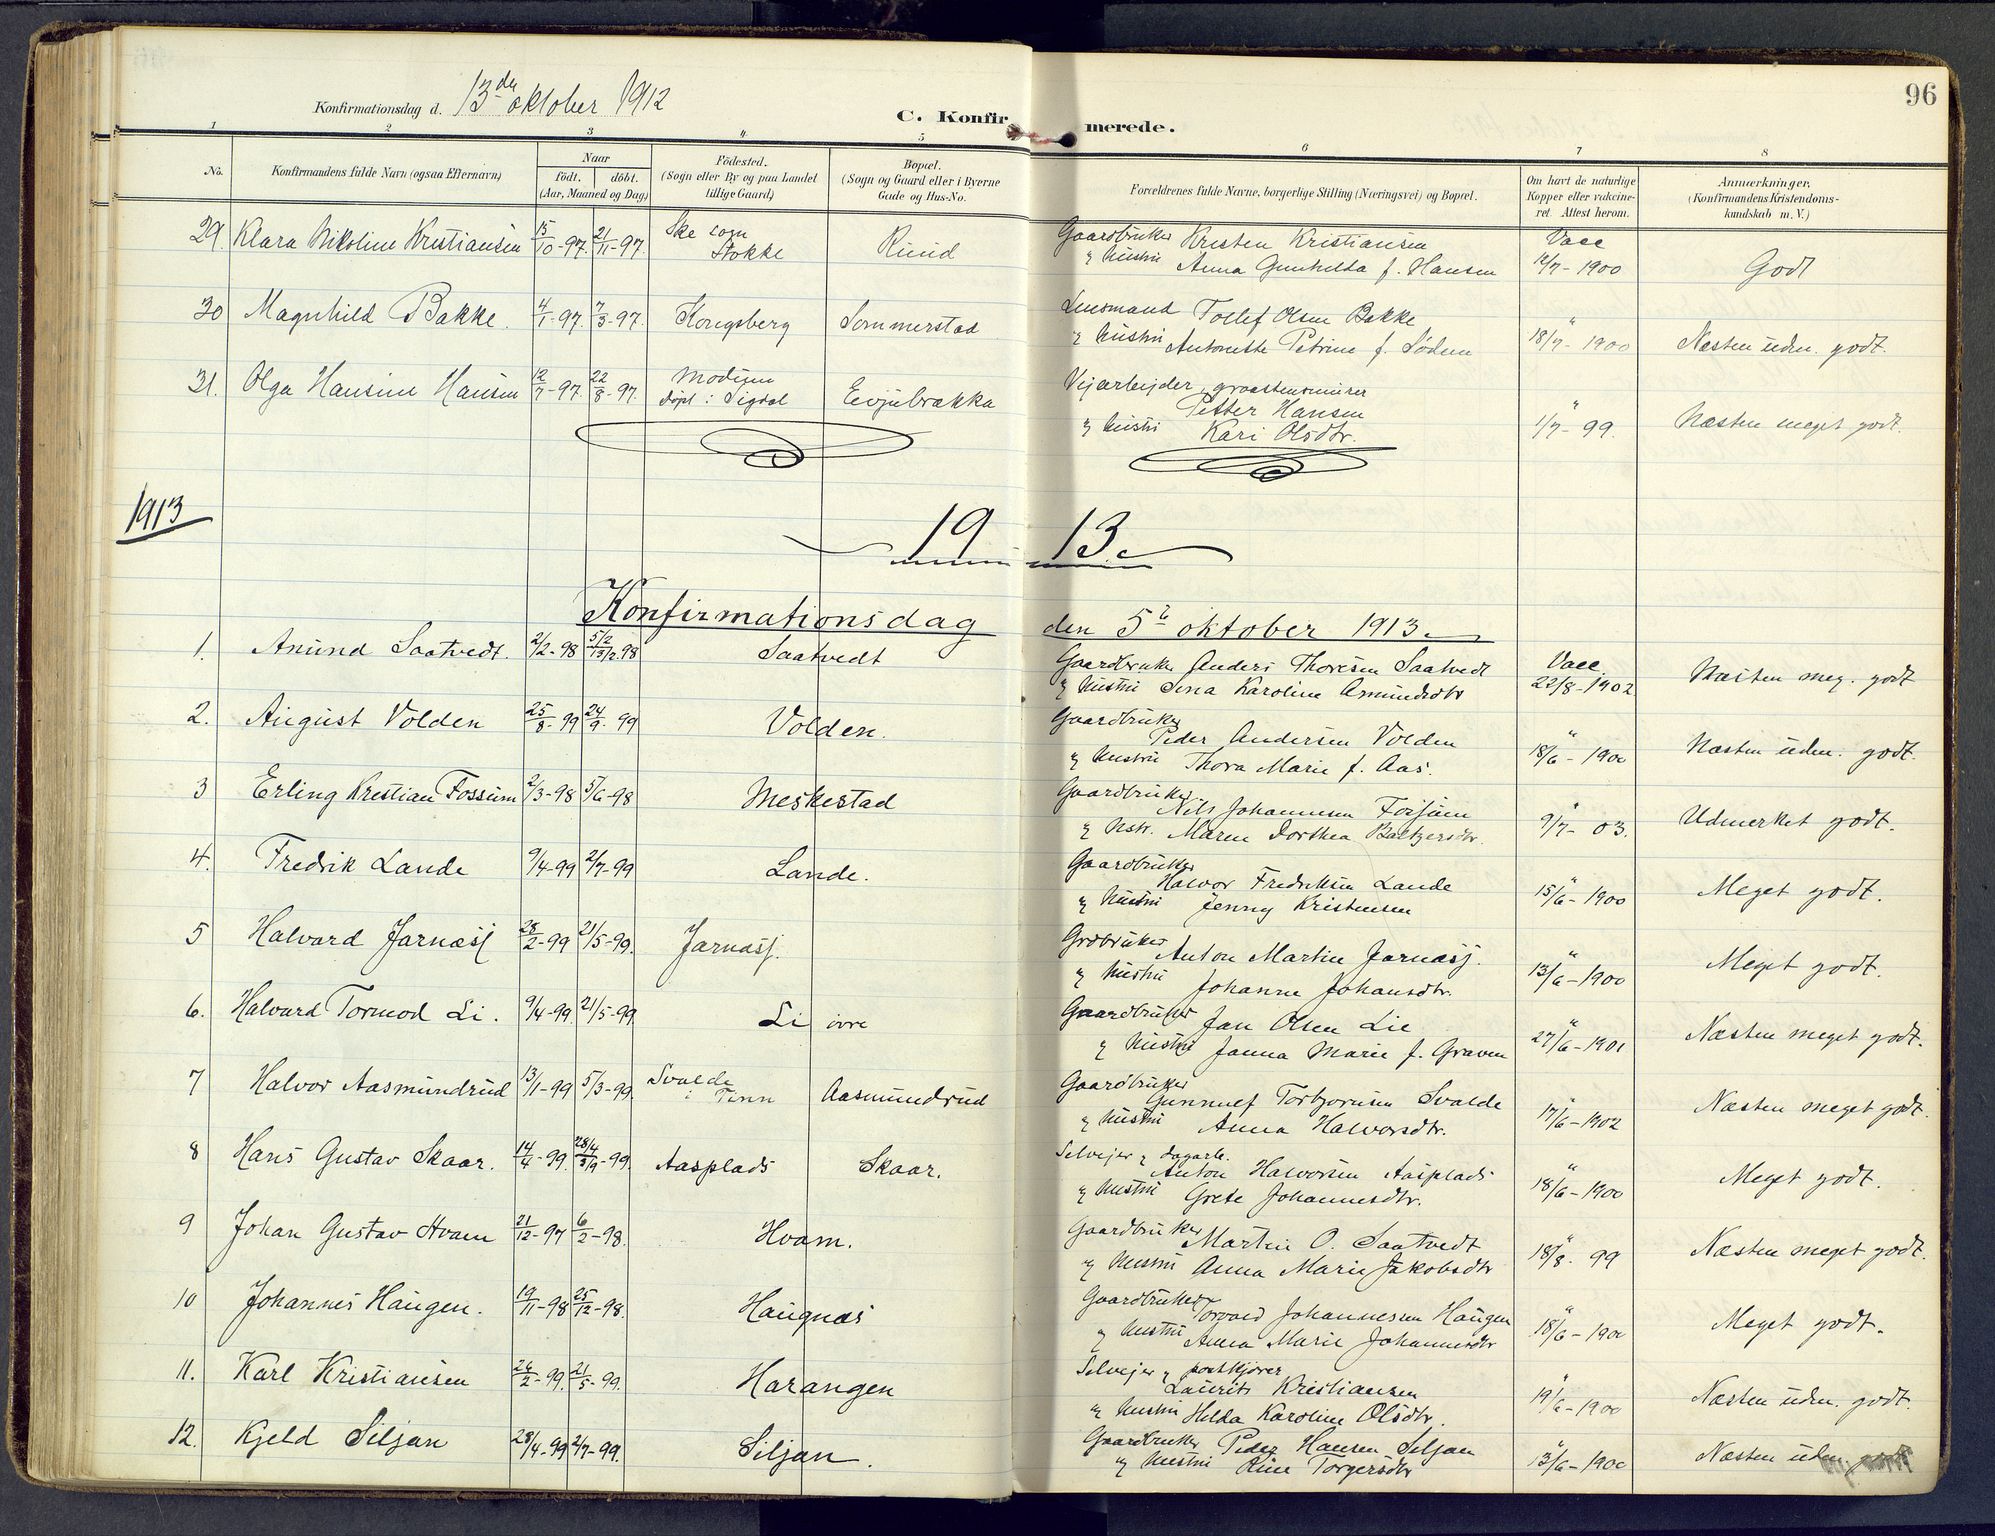 96
Konfirmationsdag d. 13de oktober 1912
C. Konfirmerede.
1 2 3 4 5 6 7 8
No.
Konfirmandens fulde Navn (ogsaa Efternavn)
Naar
født. döbt.
(Aar, Maaned og Dag)
Födested.
(Sogn eller By og paa Landet
tillige Gaard)
Bopæl.
(Sogn og Gaard eller i Byerne
Gade og Hus-No.
Forældrenes fulde Navne, borgerlige Stilling (Næringsvei) og Bopæl.
Om havt de naturlige
Kopper eller vakcine-
ret. Attest herom.
Anmærkninger,
(Konfirmandens Kristendoms-
kundskab m. V.)
29. Klara Nikoline Kristiansen 15/10-97. 21/11-97. Ske sogn Stokke Ruud Gaardbruker Kresten Kristiansen Vacc
" hustru Anna Gunhilda f. Hansen 12/7-1900 Godt
30 Magnhild Bakke. 4/1-97. 7/3-97. Kongsberg Sommerstad Lensmand Tollef Olsen Bakke
" hustru Antonette Petrine f. Sødem 18/7-1900 Næsten udm. godt.
31. Olga Hansine Hansen 12/7-97. 22/8-97. Modum døpt i Sigdal Evjubrækka Vejarbejder, graastensmurer
Petter Hansen
" hustru Kari Olsdtr. 1/7-99. Næsten meget godt.
1913
1913.
Konfirmationsdag den 5te oktober 1913.
1. Amund Saatvedt. 2/2-98 5/2 13/2.98 Saatvedt Gaardbruker Anders Thoresen Saatvedt Vacc.
" hustru Sina Karoline Amundsdtr 22/8-1902 Næsten meg. godt
2. August Volden 25/8-99 24/9-99 Volden. Gaardbruker
Peder Andersen Volden
" hustru Thora Marie f. Aas. 18/6-1900 Næsten udm. godt.
3 Erling Kristian Fossum 2/3-98 5/6-98 Meskestad Gaardbruker
Nils Johannesen Fossum
" hstr. Maren Dorthea Baltzersdtr. 9/7-03. Udmerket godt.
4. Fredrik Lande 9/4-99 2/7-99 Lande. Gaardbruker
Halvor Fredriksen Lande
" hustru Jenny Kristensen 15/6-1900 Meget godt.
5 Halvard Jarnæsj 28/2-99 21/5-99. Jarnæsj. Grdbruker Anton Martin Jarnæsj.
" hustru Johanne Johansdtr. 13/6-1900 Meget godt.
6. Halvard Tormod Li. 9/4-99. 21/5-99. Li øvre Gaardbruker Jan Olsen Lie
" hustru Janna Marie f. Graven 27/6-1901 Næsten meget godt.
7 Halvor Aasmundrud 13/1-99 5/3-99. Svalde i Tinn Aasmundrud Gaardbruker
Gunnulf Torbjørnsen Svalde
" hustru Anna Halvorsdtr. 17/6-1902 Næsten meget godt.
8 Hans Gustav Skaar. 14/4-99. 28/4 3/9-99. Aasplads Skaar. Selvejer " dagarb.
Anton Halvorsen Aasplads
" hustru Grete Johannesdtr. 18/6-1900 Meget godt.
9 Johan Gustav Hvam 21/12-97 6/2-98. Hvam. Gaardbruker Martin O. Saatvedt
" hustru Anna Marie Jakobsdtr 18/8. 99 Næsten meget godt.
10 Johannes Haugen. 19/11-98 25/12-98. Haugnæs Gaardbruker Torvald Johannesen Haugen
" hustru Anna Marie Johannesdtr 18/6-1900 Meget godt.
11. Karl Kristiansen 26/2-99. 21/5-99. Harangen Selvejer " postkjører
Laurits Kristiansen
" hustru Hilda Karoline Olsdtr. 19/6-1900 Næsten udm. godt.
12. Kjeld Siljan 28/4-99 2/7-99. Siljan. Gaardbruker Peder Hansen Siljan
" hustru Rine Torgersdtr 13/6-1900 Næsten udm. godt